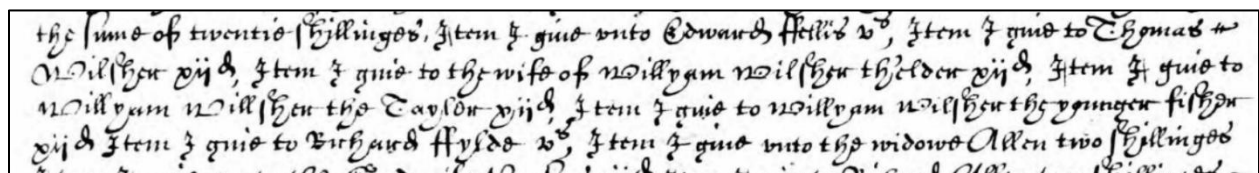 the sume of twentie shillinges, Item I giue vnto Edward ffellis vs, Item I giue to Thomas
Wilsher xijd, Item I giue to the wife of Willyam Wilsher thelder xijd, Item I giue to
Willyam Willsher the Taylor xijd, Item I giue to Willyam Wilsher the younger fisher
xijd Item I giue to Richard ffylde vs, Item I giue vnto the widowe Allen two shillinges